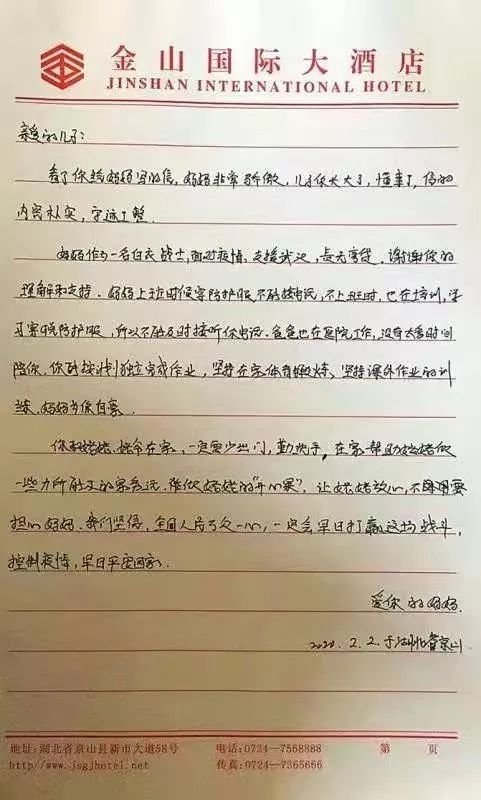 金山国际大酒店
JINSHAN INTERNATIONAL HOTEL
亲爱的儿子：
看了你给妈妈写的信，妈妈非常骄傲，儿子你长大了，懂事了，信的
内容朴实，字迹工整。
妈妈作为一名白衣战士，面对疫情，支援武汉，责无旁贷。谢谢你的
理解和支持。妈妈上班时候穿防护服不能接电话，不上班时，也在培训，学
习穿脱防护服，所以不能及时接听你电话。爸爸也在医院工作，没有太多时间
陪你，你能按计划独立完成作业，坚持在家体育锻炼、坚持课外作业的训
练，妈妈为你自豪。
你和姥姥、姥爷在家，一定要少出门，勤洗手，在家帮助姥姥做
一些力所能及的家务活，做姥姥的“开心果”，让姥姥放心，不要
担心妈妈。我们坚信，全国人民万众一心，一定会早日打赢这场战斗，
控制疫情，早日平安回家。
爱你的妈妈
2020.2.2.于湖北省京山
地址：湖北省京山县新市大道58号
电话：0724—7558888
第 页
http://www.jsgjhotel.net
传真：0724—7365666